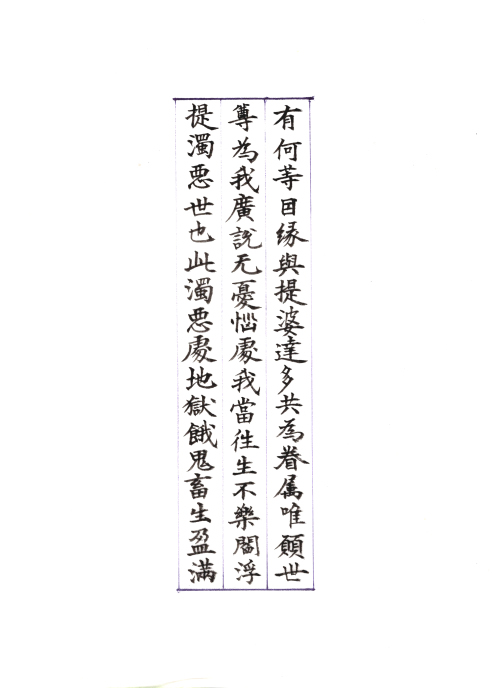 有何等因緣與提婆達多共為眷属唯願世
尊為我廣說无憂惱處我當往生不樂閻浮
提濁悪世也此濁悪處地獄餓鬼畜生盈満